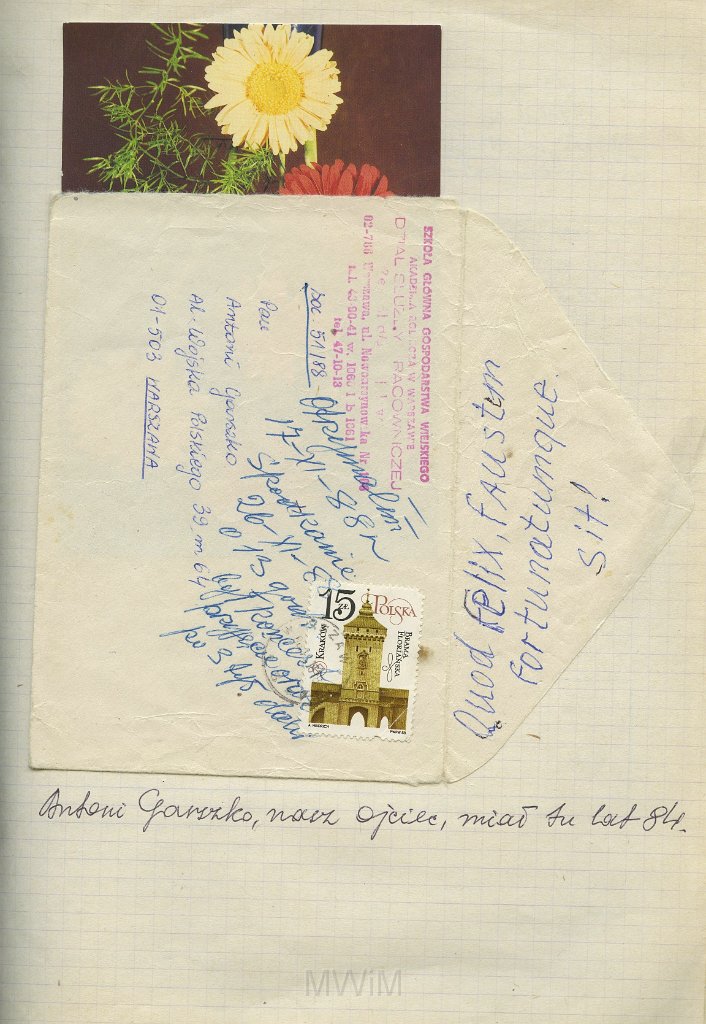 SZKOŁA GŁÓWNA GOSPODARSTWA WIEJSKIEGO
AKADEMIA ROLNICZA W WARSZAWIE
DZIAŁ SŁUŻBY PRACOWNICZEJ
02-766 Warszawa, ul. Nowoursynowska Nr 166
tel. 43-90-41 w. 1060 i b 1061
tel. 47-10-13
Soc. 51/88
Pan
Antoni Garszko
Al. Wojska Polskiego 39 m 64
01-503 WARSZAWA
Otrzymałem
17-XI-88 r
Spotkanie
26-XI-8
o 13 godz.
koncert
przyjęcie oraz
po 3 tyś. dary
15 ZŁ
POLSKA
KRAKÓW
BRAMA
FLORIAŃSKA
PWPW 85
Quod Felix, FAustum
Fortunatumque.
Sit!
Antoni Garszko, nasz ojciec, miał tu lat 84.
MWiM